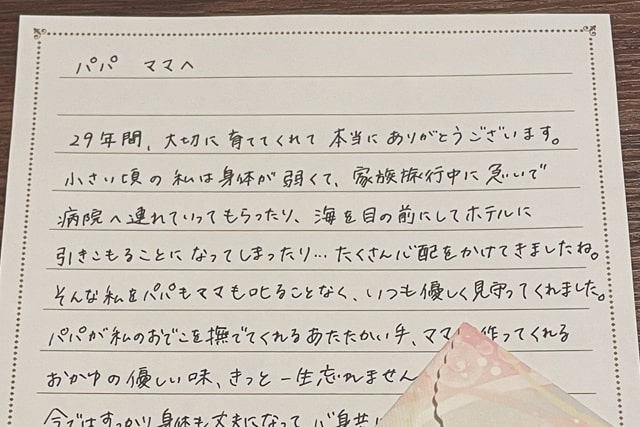 パパ ママへ
29年間、大切に育ててくれて本当にありがとうございます。
小さい頃の私は身体が弱くて、家族旅行中に急いで
病院へ連れていってもらったり、海を目の前にしてホテルに
引きこもることになってしまったり…たくさん心配をかけてきましたね。
そんな私をパパもママも叱ることなく、いつも優しく見守ってくれました。
パパが私のおでこを撫でてくれるあたたかい手、ママ 作ってくれる
おかゆの優しい味、きっと一生忘れません
今ではすっかり身体も丈夫になって、心身共